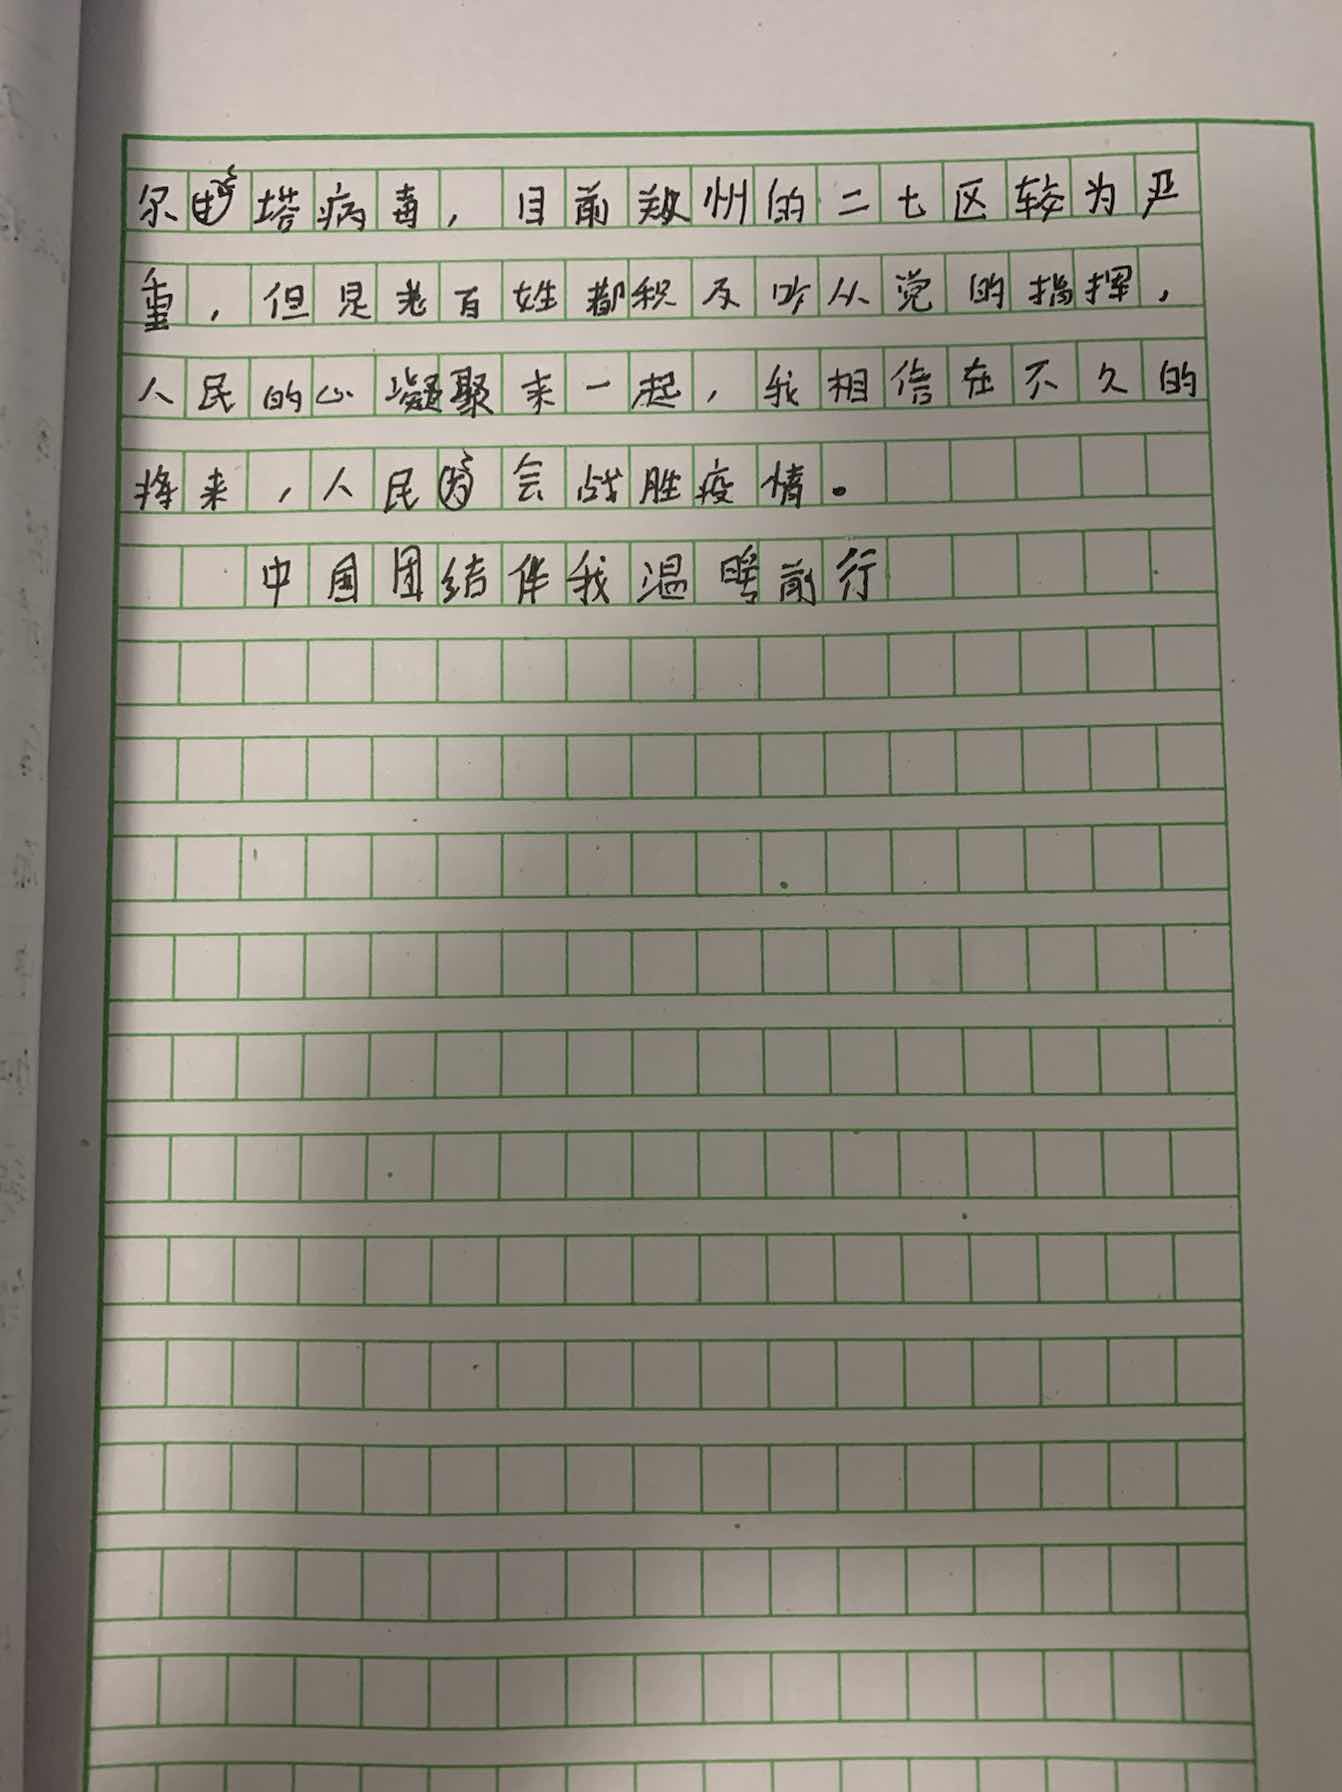 尔塔病毒，目前郑州的二七区较为严
重，但是老百姓都积及听从党的指挥，
人民的心凝聚来一起，我相信在不久的
将来，人民会战胜疫情。
中国团结伴我温暖前行